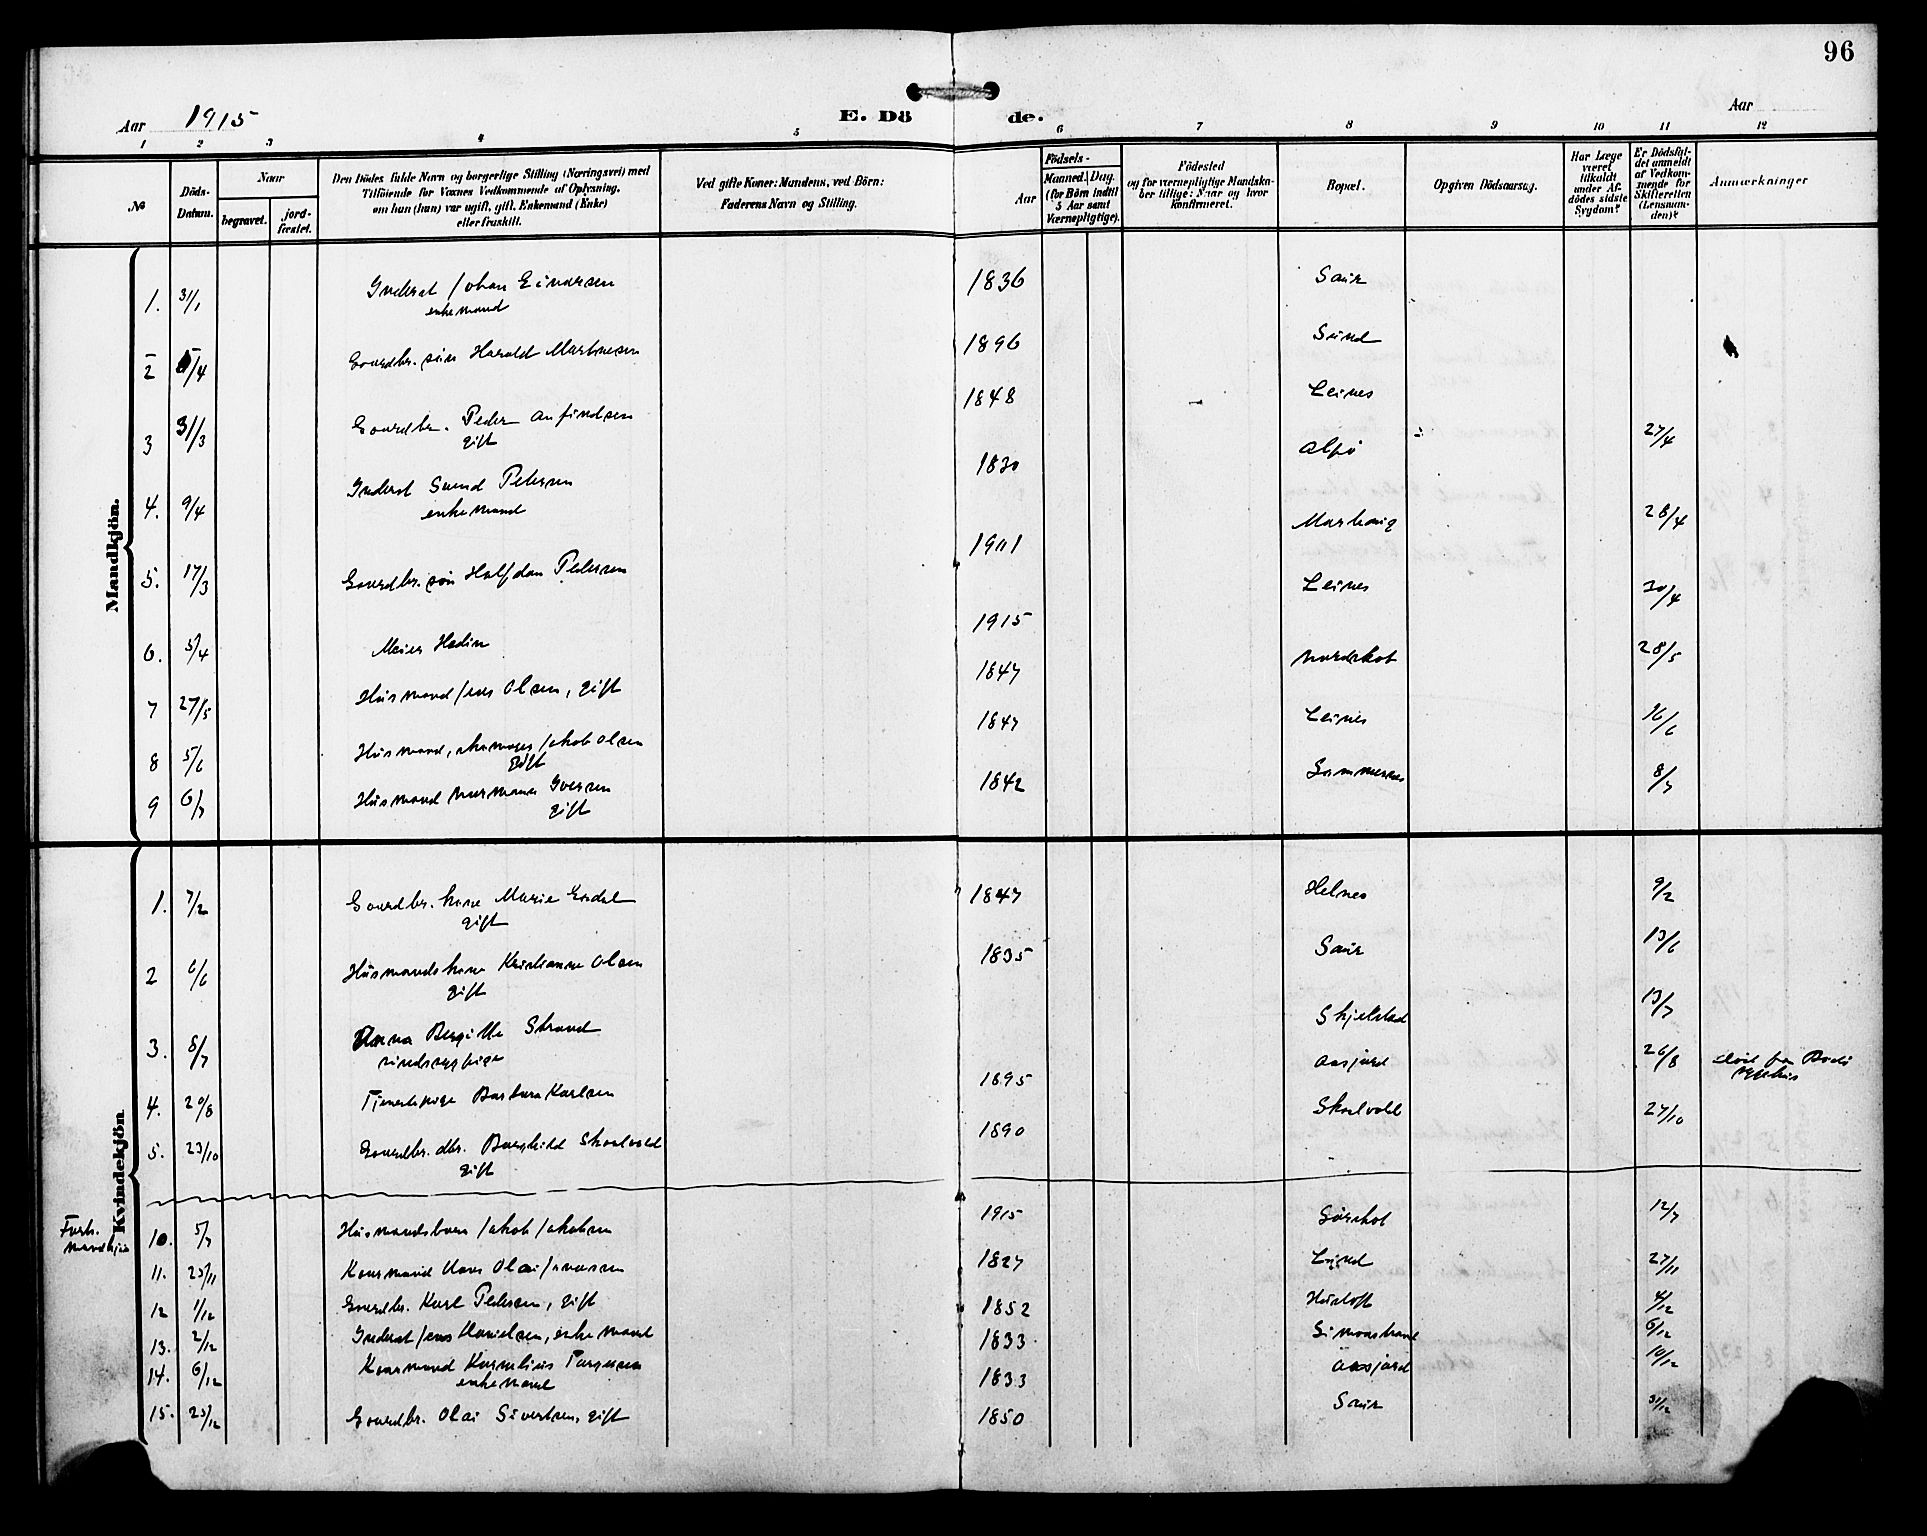 96
Aar 1915
E. Döde.
Aar
1 2 3 4 5 6 7 8 9 10 11 12
No
Döds-Datum.
Naar
begravet.
jord-fæstet.
Den Dödes fulde Navn og borgerlige Stilling (Næringsvei) med
Tilföiende for Voxnes Vedkommende af Oplysning,
om han (hun) var ugift, gift, Enkemand (Enke)
eller fraskilt.
Ved gifte Koner: Mandens, ved Börn:
Faderens Navn og Stilling.
Aar
Födsels-
Maaned. Dag.
(for Börn indtil
5 Aar samt
Værnepligtige).
Födested
og for værnepligtige Mandska-
ber tillige: Naar og hvor
konfirmeret.
Bopæl.
Opgiven Dödsaarsag.
Har Læge
været
tilkaldt
under Af-
dödes sidste
Sygdom?
Er Dödsfal-
det anmeldt
af Vedkom-
mende for
Skifteretten
(Lensman-
den)?
Anmærkninger
Mandkjön.
1. 31/1 Inderst Johan Einarsen 1836 Saur
enkemand
2 5/4 Gaardbr. sön Harald Martinesen 1896 Sund
3 31/3 Gaardbr. Peder Anfindsen 1848 Leines 27/4
gift
4. 9/4 Inderst Svend Petersen 1830 Alsö 28/4
enkemand
5. 17/3 Gaardbr. sön Halfdan Pedersen 1911 Marhaug 30/4
6. 5/4 Meier Hedin 1915 Leines 28/5
7 27/5 Husmand Jens Olsen, gift 1847 Nordskot 16/6
8 5/6 Husmand, skomager Jakob Olsen 1847 Leines 8/7
gift
9 6/7 Husmand Normann Iversen 1842
gift
Kvindekjön
1. 7/2 Gaardbr. kone Marie Endal 1847 Helnes 9/2
gift
2 6/6 Husmandskone Kristianne Olsen 1835 Saur 13/6
gift
3. 8/7 Anna Bergitte Strand Skjelstad 13/7
sindssyg pige
4. 20/8 Tjenestepige Barbara Karlsen 1895 Aasjord 26/8 död paa Bodö
sygehus
5. 23/10 Gaardbr. dtr. Borghild Skaalvold 1890 Skaalvold 27/10
gift
Forts.
mandkjön
10. 5/7 Husmandsbarn Jakob Jakobsen 1915 Sörskot 12/7
11. 23/11 Kaarmand Hans Olai 1827 27/11
12 1/12 Gaardbr. Karl Pedersen, gift 1852 Husloft 4/12
13. 2/12 Inderst Jens Danielsen, enkemand 1833 Simonstrand 6/12
14. 6/12 Kaarmand Kornelius Torgersen 1833 Aasjord 10/12
enkemand
15. 23/12 Gaardbr. Olai Sivertsen, gift 1850 Saur 31/12